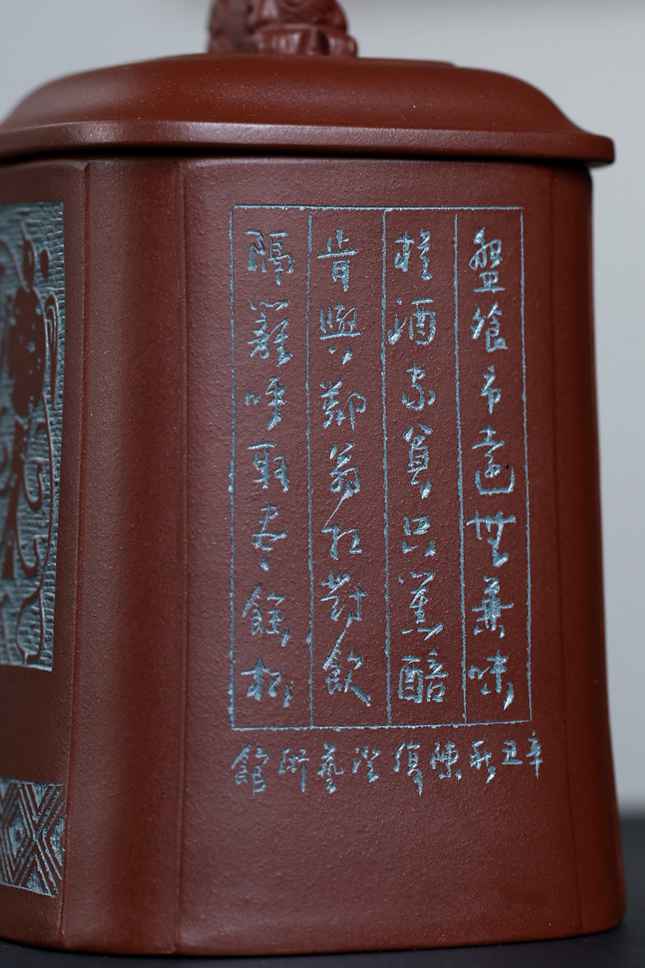 盤飧市遠無兼味
樽酒家貧只舊醅
肯與鄰翁相對飲
隔籬呼取盡餘杯
辛丑秋陳復澄藝術館